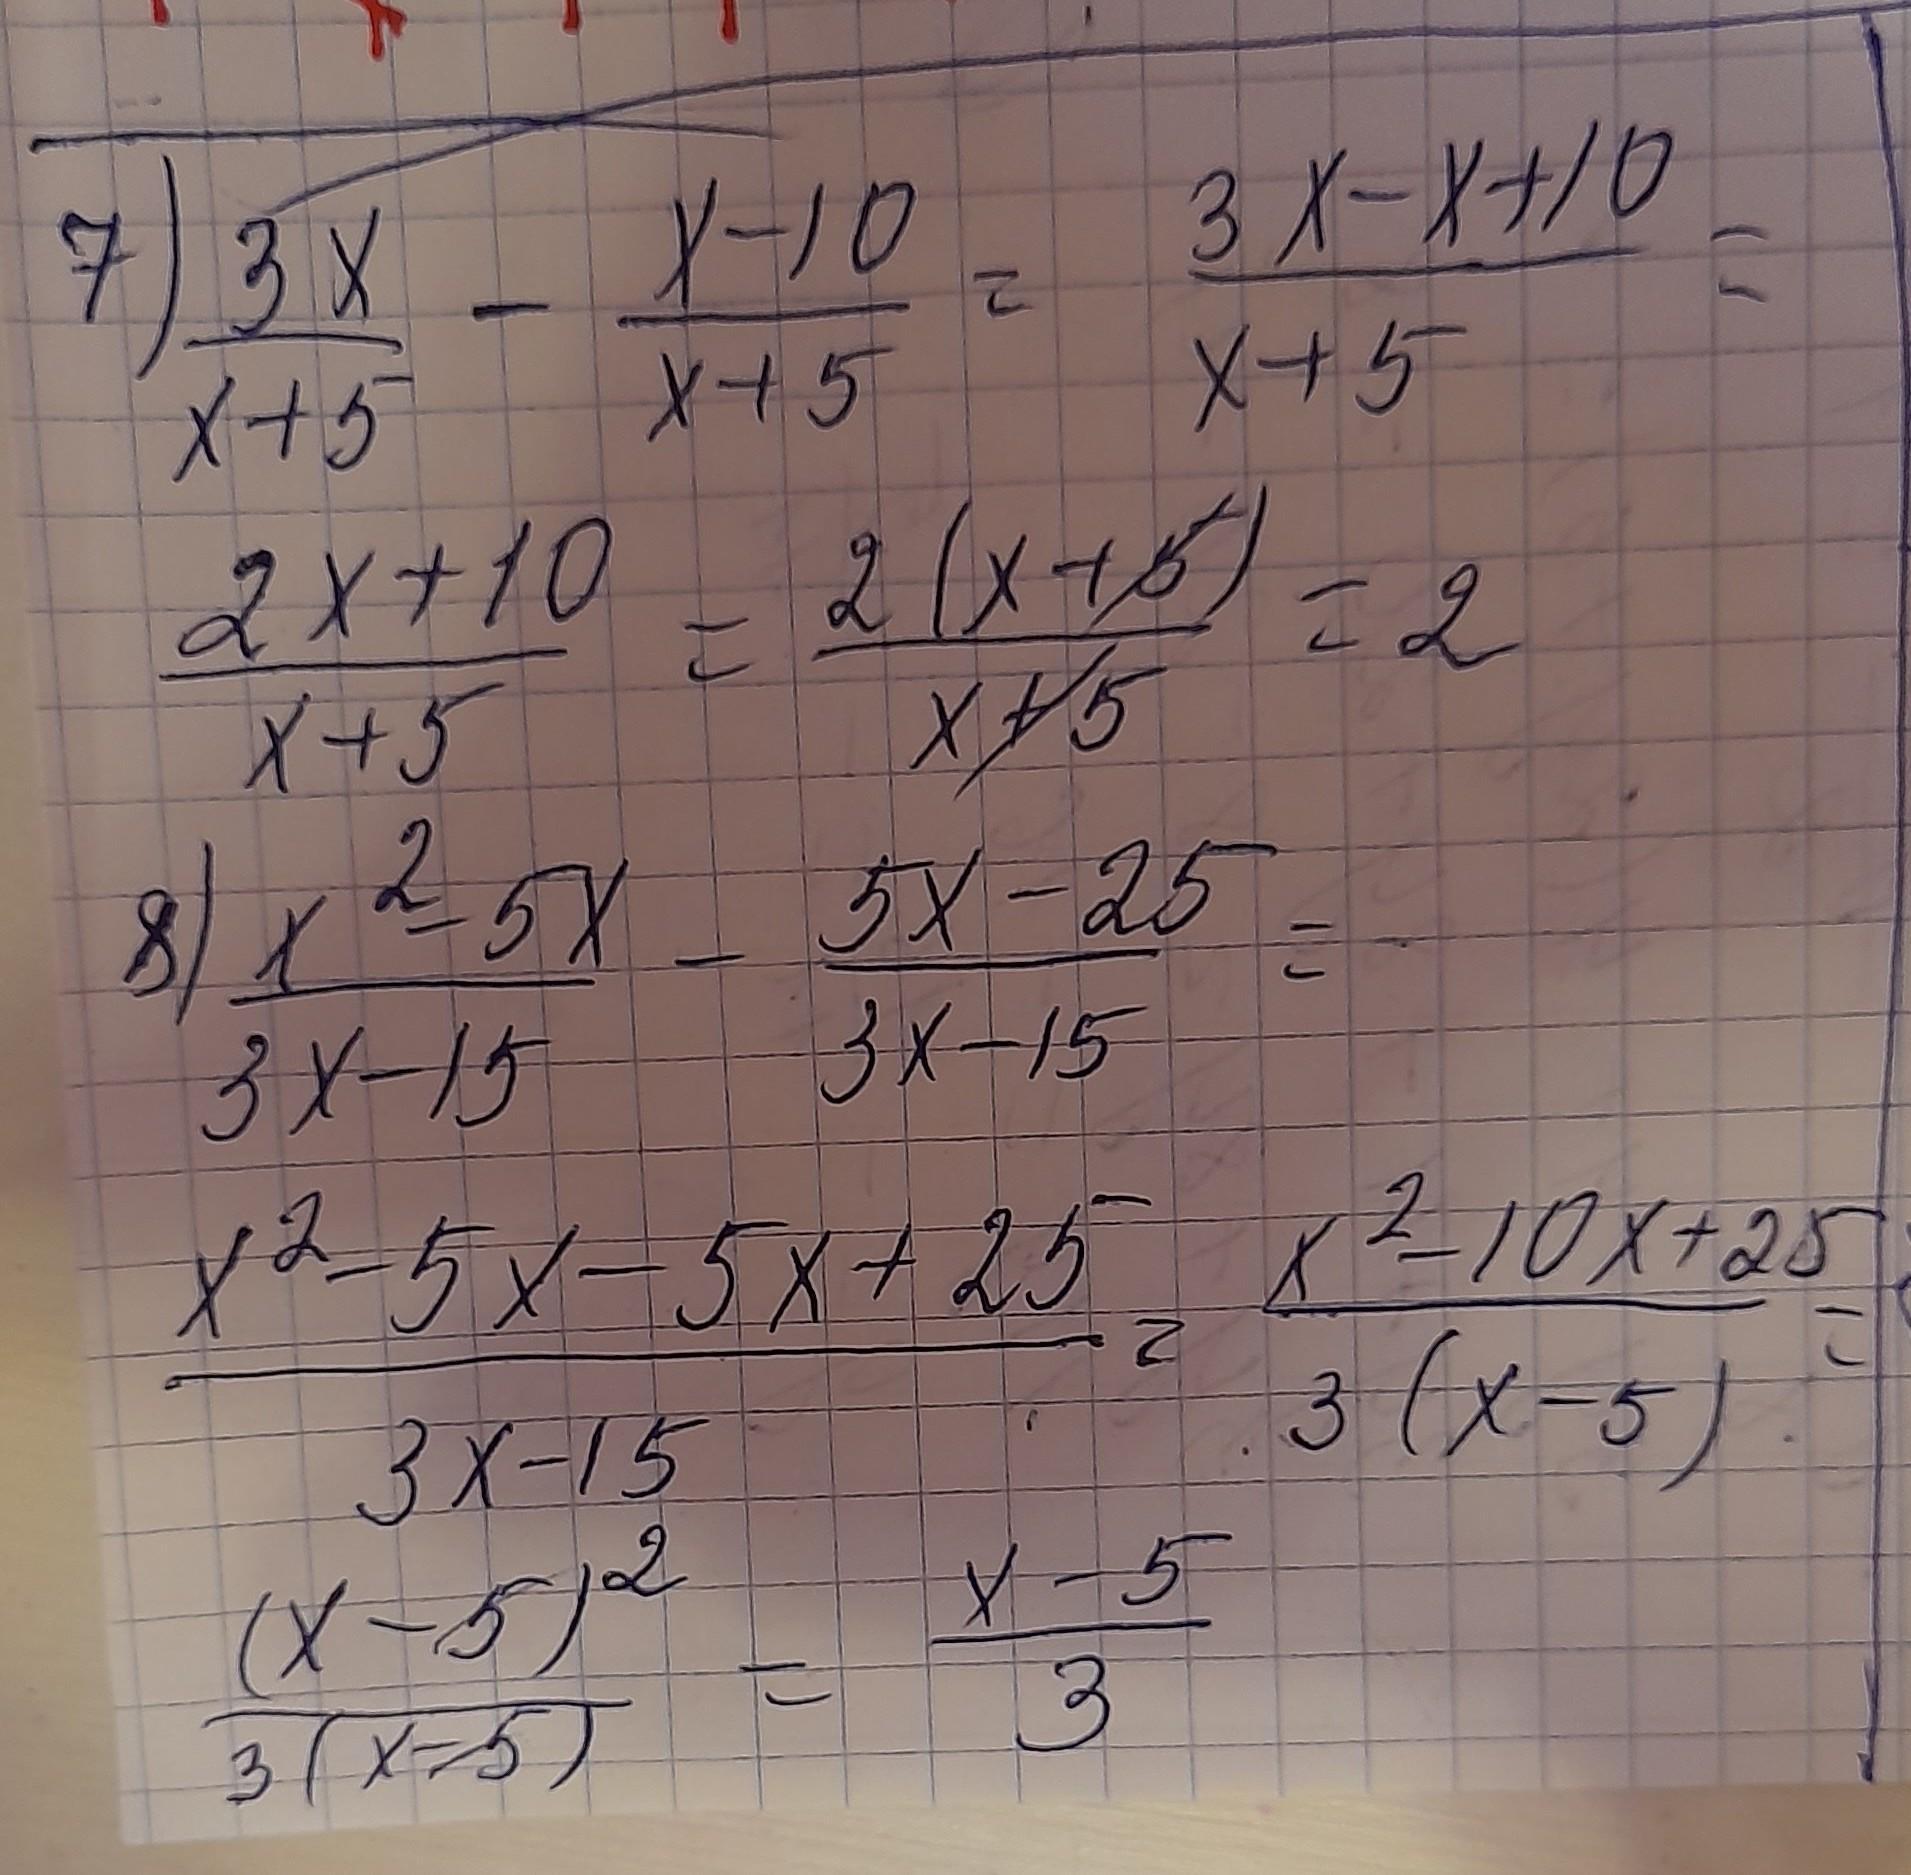 7) 3x/(x+5) - (x-10)/(x+5) = (3x-x+10)/(x+5) =
(2x+10)/(x+5) = 2(x+5)/(x+5) = 2
8) (x²-5x)/(3x-15) - (5x-25)/(3x-15) =
(x²-5x-5x+25)/(3x-15) = (x²-10x+25)/(3(x-5)) =
(x-5)²/(3(x-5)) = (x-5)/3